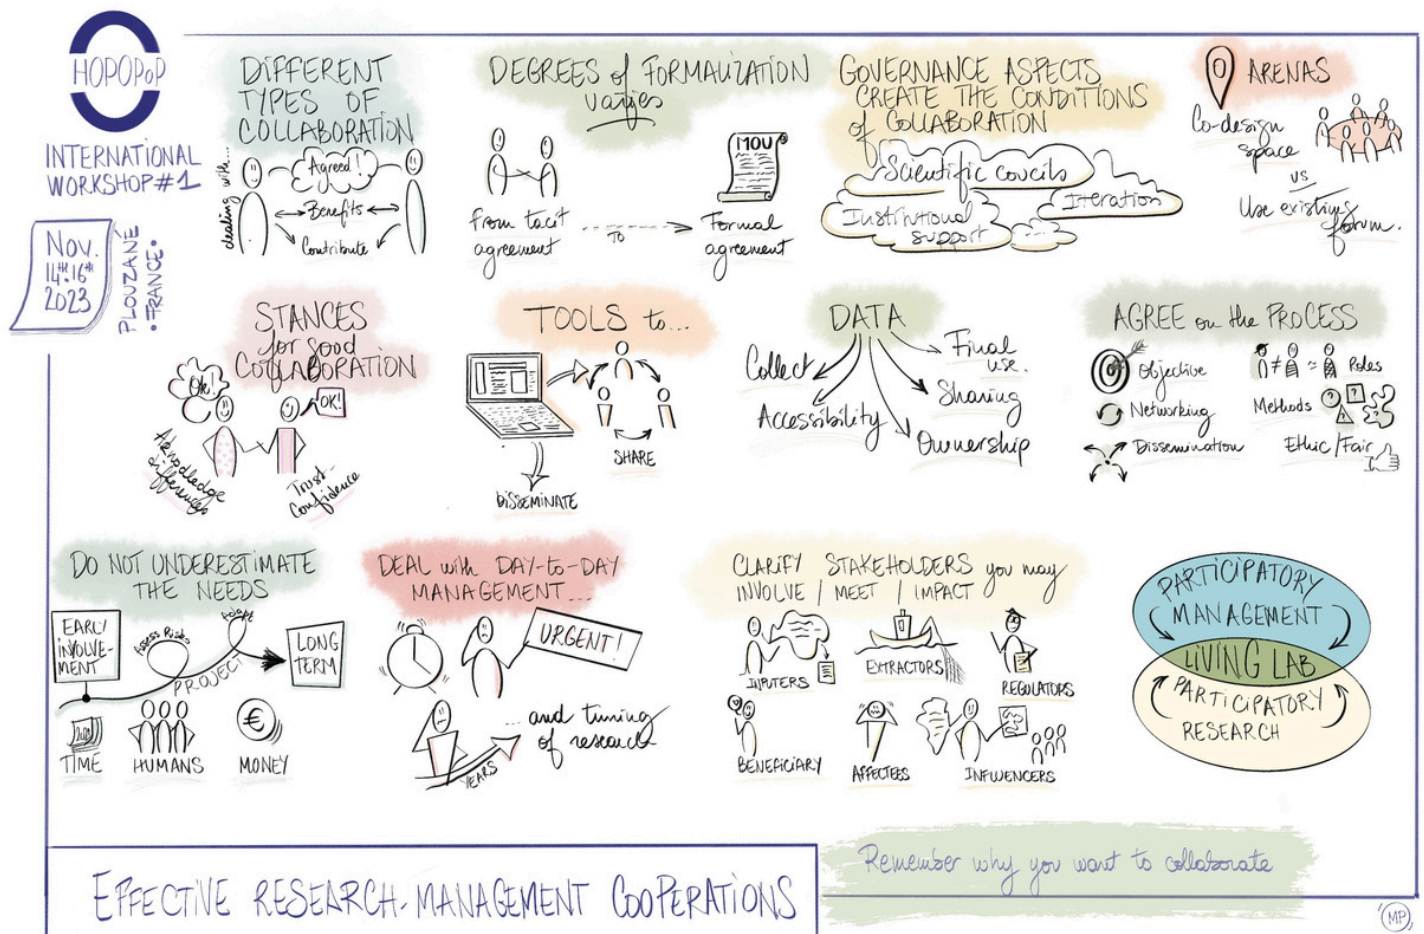 HOPOPoP
INTERNATIONAL
WORKSHOP #1
NOV.
14TH.16th
2023
PLOUZANÉ
• FRANCE •
DIFFERENT
TYPES OF
COLLABORATION
dealing with...
Agreed!
Benefits
Contribute
DEGREES of FORMALIZATION
varies
from tacit
agreement
TO
MOU
Formal
agreement
GOVERNANCE ASPECTS
CREATE THE CONDITIONS
of COLLABORATION
Scientific coucils
Institutional
support
Iteration
...
ARENAS
Co-design
space
vs
Use existing
forum.
STANCES
for good
COLLABORATION
Ok!
OK!
Aknowledge
differences
Trust-
Confidence
TOOLS to...
SHARE
DISSEMINATE
DATA
Collect
Accessibility
Final
use.
Sharing
Ownership
AGREE on the PROCESS
Objective
Networking
Dissemination
≠ ≈ Roles
Methods
? ?
!
Ethic/Fair
DO NOT UNDERESTIMATE
THE NEEDS
EARLY
INVOLVE-
MENT
Assess Risks
Adapt
PROJECT
LONG
TERM
TIME
HUMANS
€
MONEY
DEAL with DAY-to-DAY
MANAGEMENT...
URGENT!
YEARS
... and timing
of research
CLARIFY STAKEHOLDERS you may
INVOLVE / MEET / IMPACT
INPUTERS
EXTRACTORS
REGULATORS
BENEFICIARY
AFFECTEES
INFLUENCERS
PARTICIPATORY
MANAGEMENT
LIVING LAB
PARTICIPATORY
RESEARCH
EFFECTIVE RESEARCH-MANAGEMENT COOPERATIONS
Remember why you want to collaborate
MP